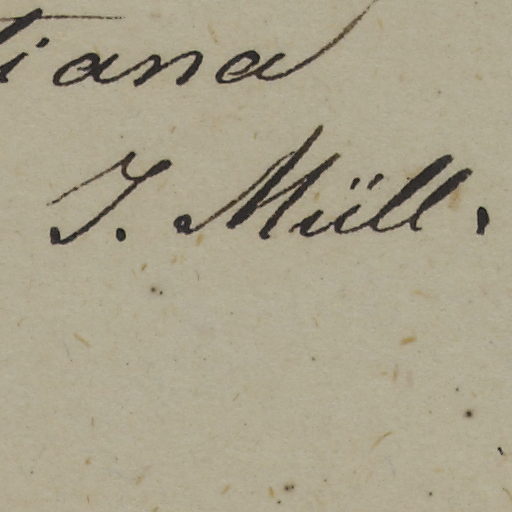 iana
J. Müll.